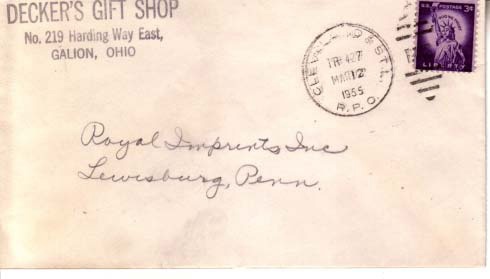 DECKER'S GIFT SHOP
No. 219 Harding Way East,
GALION, OHIO
CLEVELAND & ST.L.
TR 427
MAR 12
1955
R.P.O.
U.S. POSTAGE 3¢
LIBERTY
Royal Imprints Inc
Lewisburg, Penn.